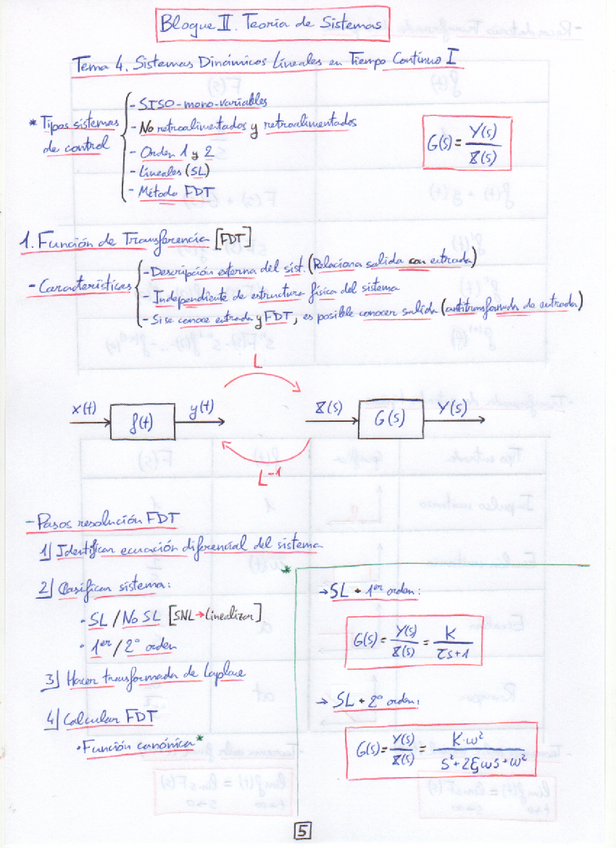 Bloque II. Teoría de Sistemas
Tema 4. Sistemas Dinámicos Lineales en Tiempo Continuo I
* Tipos sistemas de control
- SISO-mono-variables
- No retroalimentados y retroalimentados
- Orden 1 y 2
- Lineales (SL)
- Método FDT
G(s) = Y(s) / X(s)
1. Función de Transferencia [FDT]
- Características
- Descripción externa del sist. (Relaciona salida con entrada)
- Independiente de estructura física del sistema
- Si se conoce entrada y FDT, es posible conocer salida (antitransformada de entrada)
L
x(t) f(t) y(t) X(s) G(s) Y(s)
L⁻¹
- Pasos resolución FDT
1) Identificar ecuación diferencial del sistema
2) Clasificar sistema:
- SL / No SL [SNL → Linealizar]
- 1er / 2º orden
3) Hacer transformada de Laplace
4) Calcular FDT
• Función canónica *
*
→ SL + 1er orden:
G(s) = Y(s) / X(s) = K / τs+1
→ SL + 2º orden:
G(s) = Y(s) / X(s) = K·ω² / s²+2ξωs+ω²
5